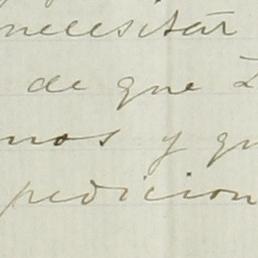 necesitar
de que
nos y qu
pedicion